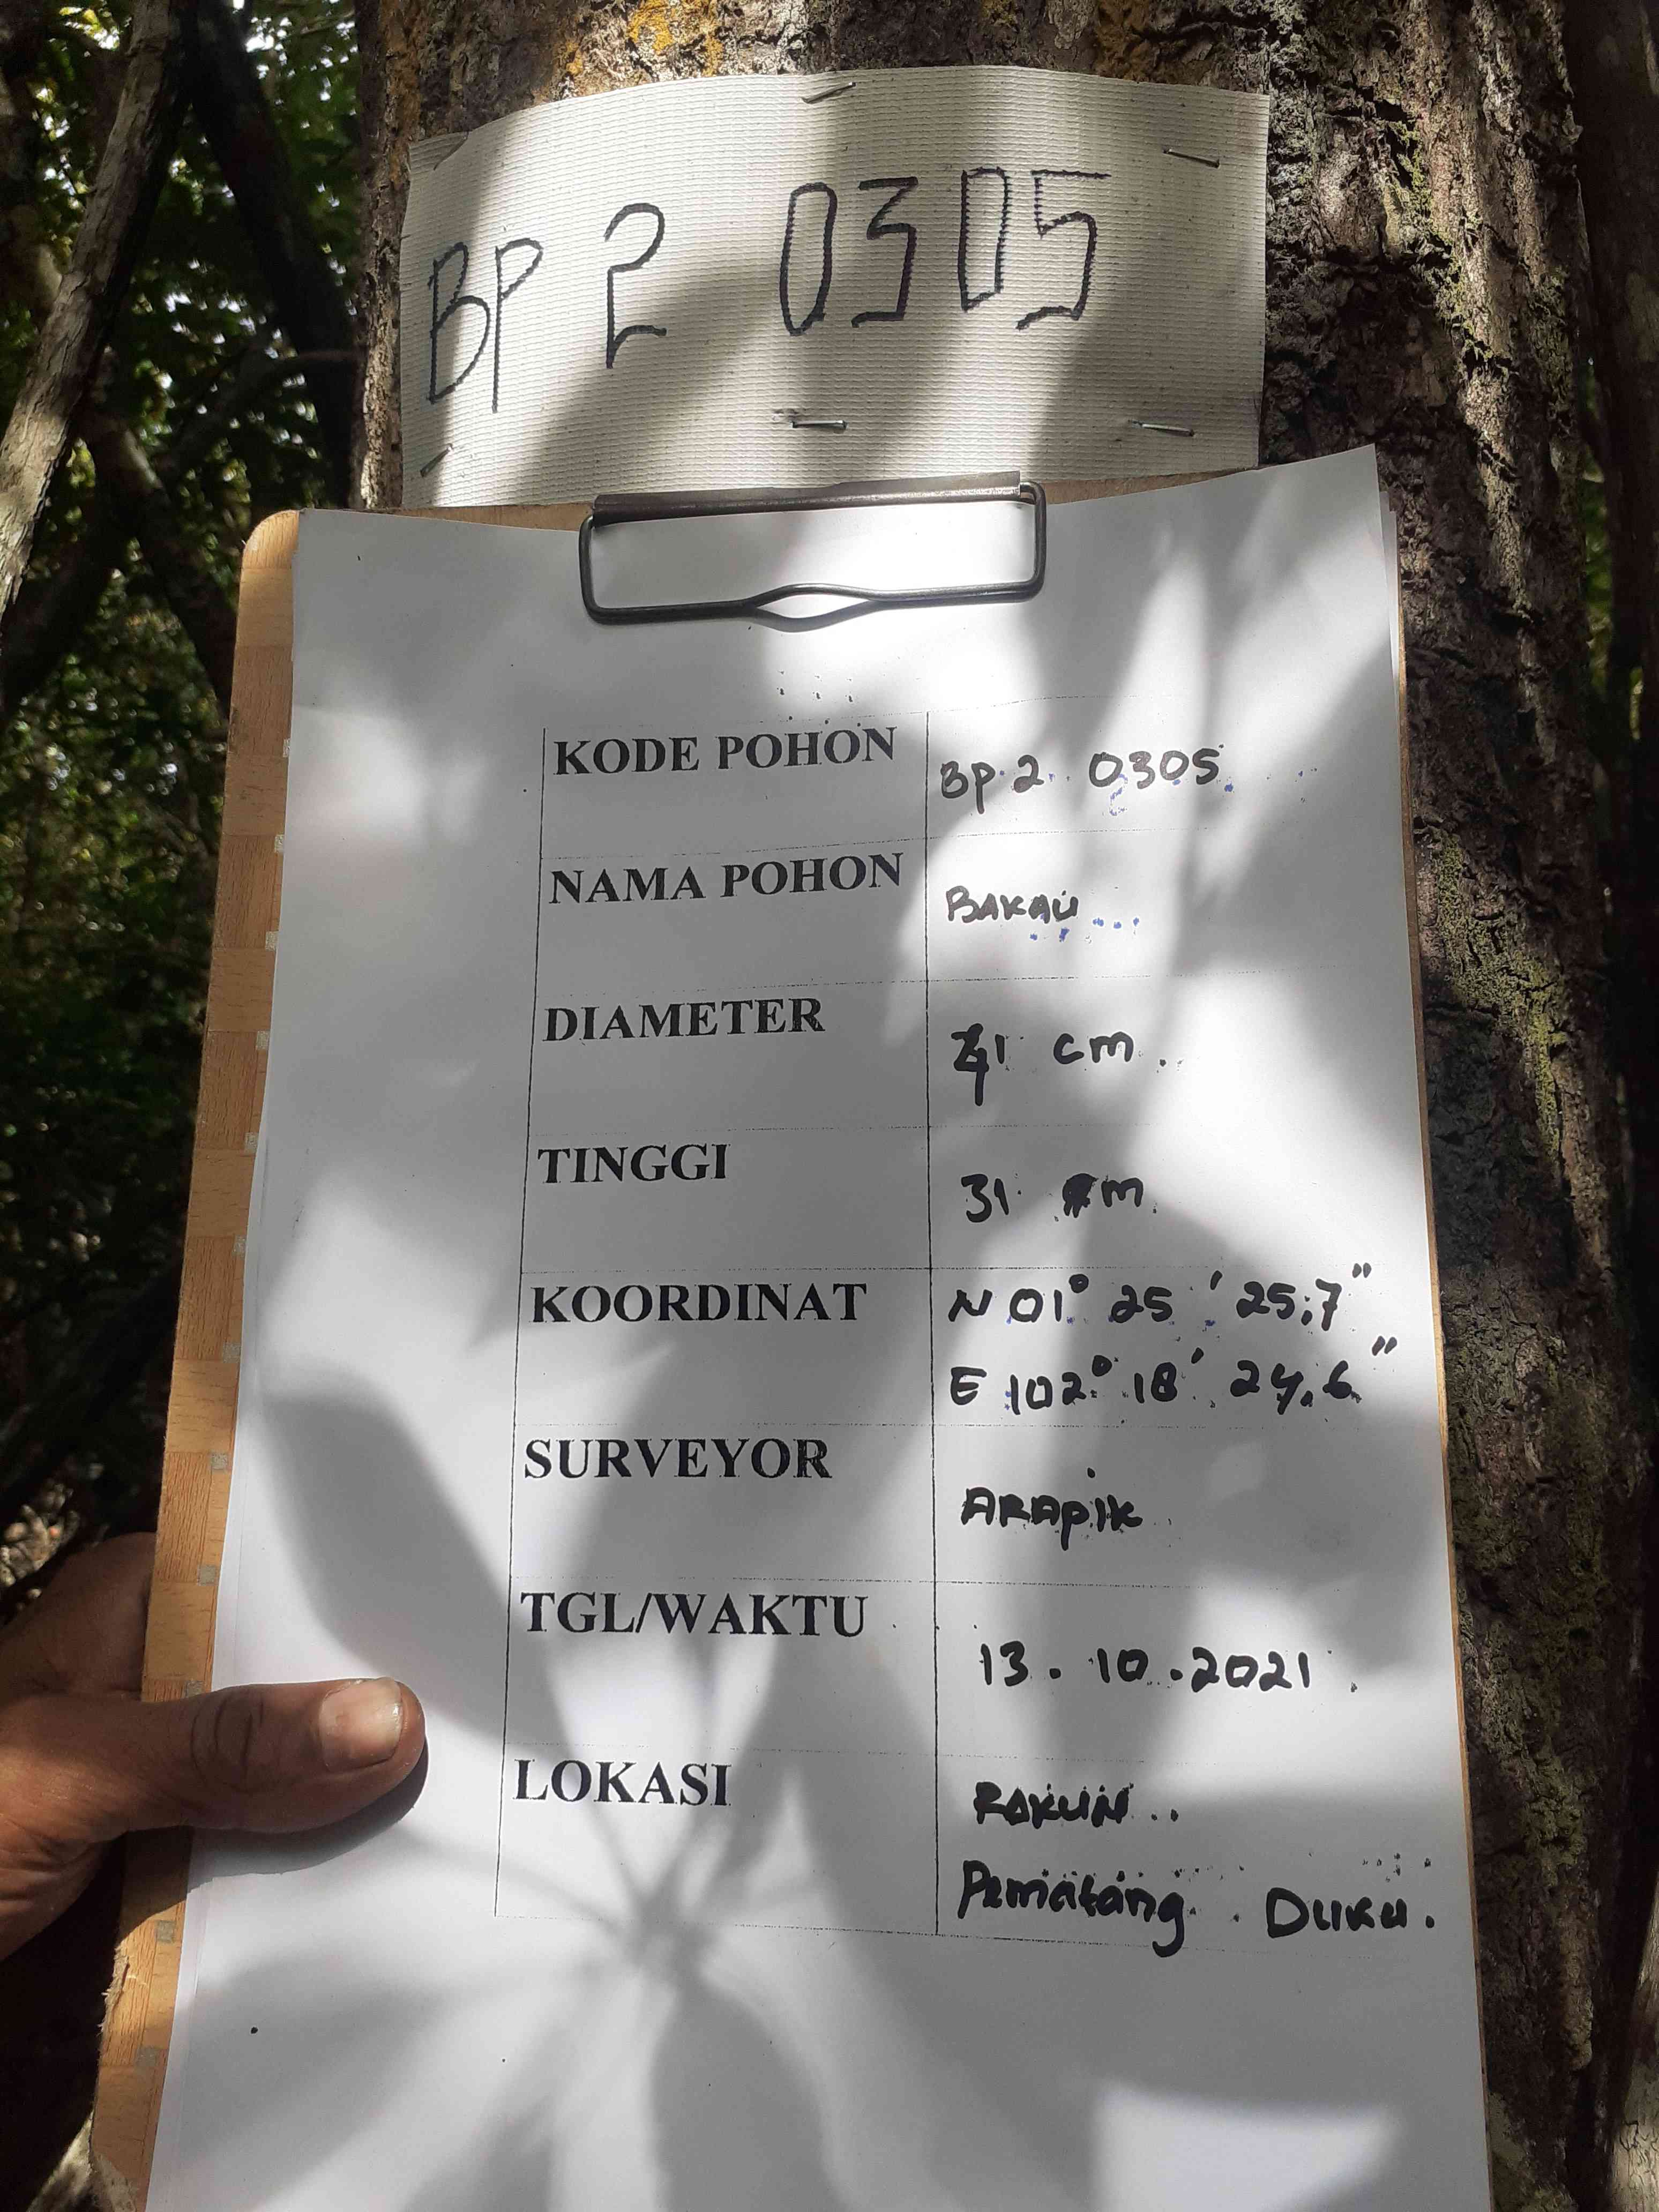 BP 2 0305
KODE POHON BP 2 0305
NAMA POHON BAKAU
DIAMETER 41 cm.
TINGGI 31 m
KOORDINAT N 01° 25' 25,7"
E 102° 18' 24,6"
SURVEYOR ARAPIK
TGL/WAKTU 13.10.2021
LOKASI
Pematang Duku.